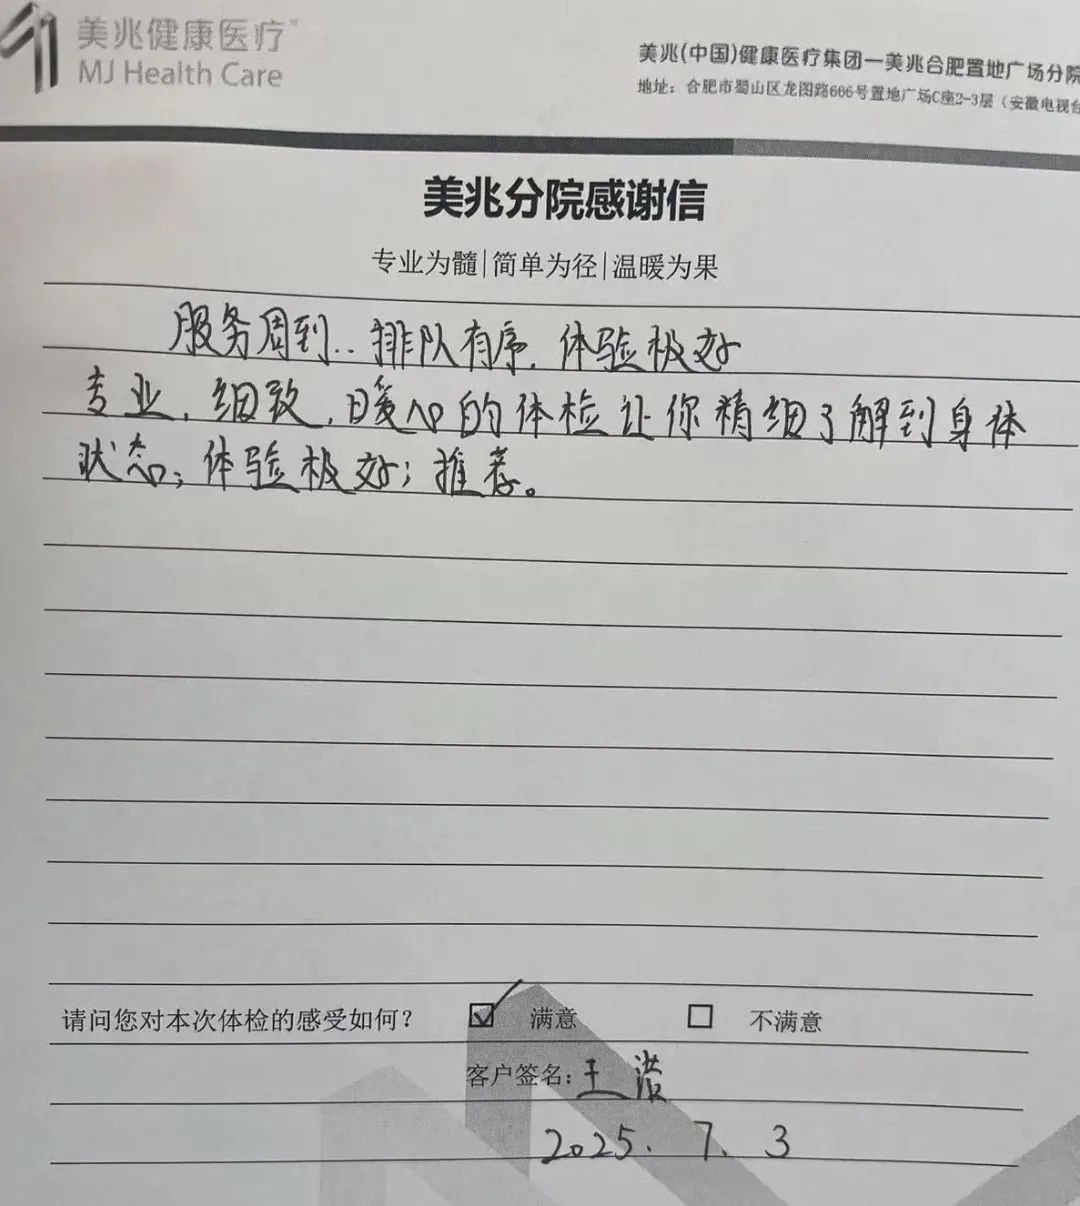 美兆健康医疗
MJ Health Care
美兆(中国)健康医疗集团—美兆合肥置地广场分院
地址：合肥市蜀山区龙图路666号置地广场C座2-3层（安徽电视台
美兆分院感谢信
专业为髓|简单为径|温暖为果
服务周到..排队有序.体验极好
专业,细致,暖心的体检让你精细了解到身体
状态;体验极好;推荐。
请问您对本次体检的感受如何? ☑ 满意 □ 不满意
客户签名: 王
2025. 7. 3